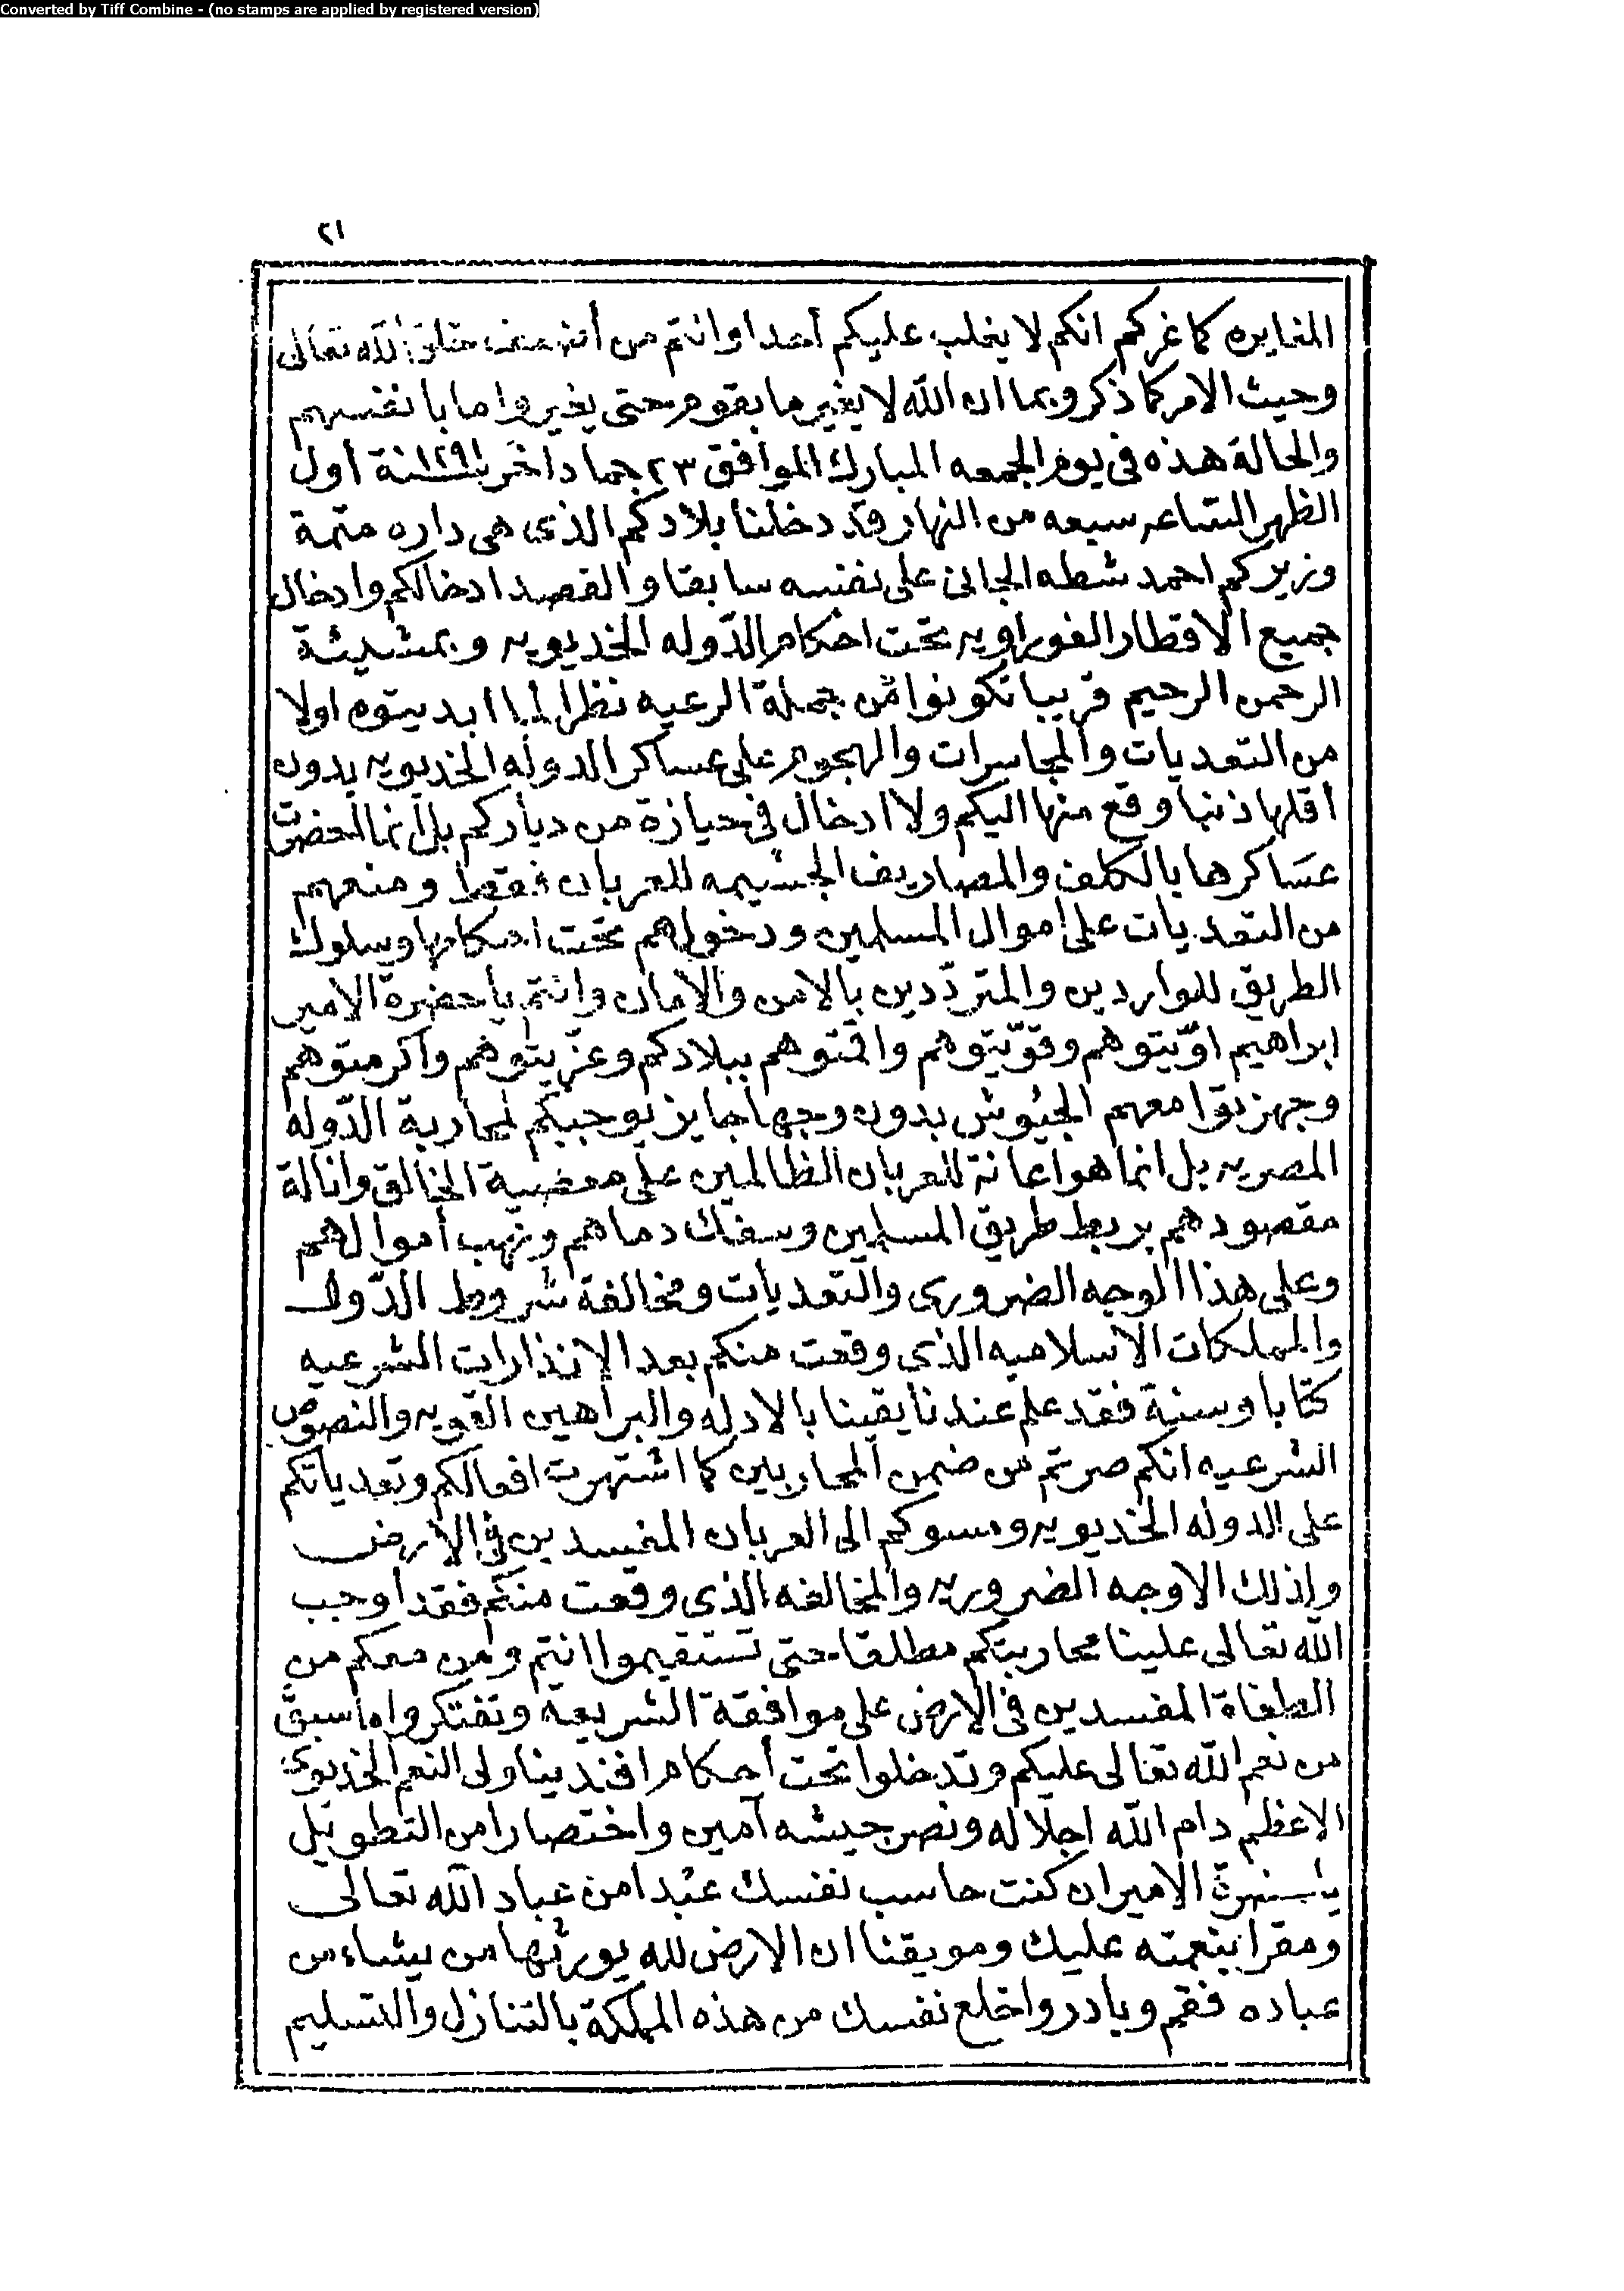 Converted by Tiff Combine - (no stamps are applied by registered version)
٢١
المغايره كما غركم انكم لا يغلب عليكم أحدا وانتم من أضعف خلق الله تعالى
وحيث الامر كما ذكر وبما ان الله لا يغير ما بقوم حتى يغيروا ما بانفسهم
والحالة هذه فى يوم الجمعه المبارك الموافق ٢٣ جماد اخر سنة ١٢٩١ أول
الظهر الساعه سبعه من النهار قد دخلنا بلادكم الذى هى داره متمة
وزيركم احمد شطه الجانى على نفسه سابقا والقصد ادخالكم وادخال
جميع الاقطار الفوراويه تحت احكام الدّوله الخديويه وبمشيئة
الرحمن الرحيم قريبا تكونوا من جملة الرعيه نظرا لما ابديتوه اولا
من التعديات والمجاسرات والهجوم على عساكر الدوله الخديويه بدون
أقلها ذنبا وقع منها اليكم ولا ادخال فى حيازة من دياركم بل انما لحضرت
عساكرها بالكلف والمصاريف الجسيمه للعربان فقط ومنعهم
من التعديات على اموال المسلمين ودخولهم تحت احكامها وسلوك
الطريق للواردين والمتردّدين بالامن والامان وانتم يا حضرة الامير
ابراهيم اوّيتوهم وقوّيتوهم واقمتوهم ببلادكم وعزّيتوهم واكرمتوهم
وجهزتوا معهم الجيوش بدون وجها جايز يوجبكم لمحاربة الدّوله
المصريه بل انما هو اعانة للعربان الظالمين على معصية الخالق وانالة
مقصودهم بربط طريق المسلمين وسفك دماهم ونهب أموالهم
وعلى هذا الوجه الضرورى والتعديات ومخالفة شروط الدّول
والمملكات الاسلاميه الذى وقعت منكم بعد الانذارات الشرعيه
كتابا وسنة فقد علم عندنا يقينا بالادله والبراهين القويه والنصوص
الشرعيه انكم صرتم من ضمن المحاربين كما اشتهرت افعالكم وتعدياتكم
على الدوله الخديويه و الى العربان المفسدين فى الارض
ولذلك الاوجه الضروريه والمخالفه الذى وقعت منكم فقد أوجب
الله تعالى علينا محاربتكم مطلقا حتى تستقيموا انتم ومن معكم من
الطغاة المفسدين فى الارض على موافقة الشريعة وتفتكروا ما سبق
من نعم الله تعالى عليكم وتدخلوا تحت أحكام افندينا ولى النعم الخديوى
الاعظم دام الله اجلاله ونصر جيشه آمين واختصارا من التطويل
يا حضرة الامير ان كنت حاسب نفسك عبدا من عباد الله تعالى
ومقرا بنعمته عليك ومويقنا ان الارض لله يورثها من يشاء من
عباده فقم وبادر واخلع نفسك من هذه المملكة بالتنازل والتسليم